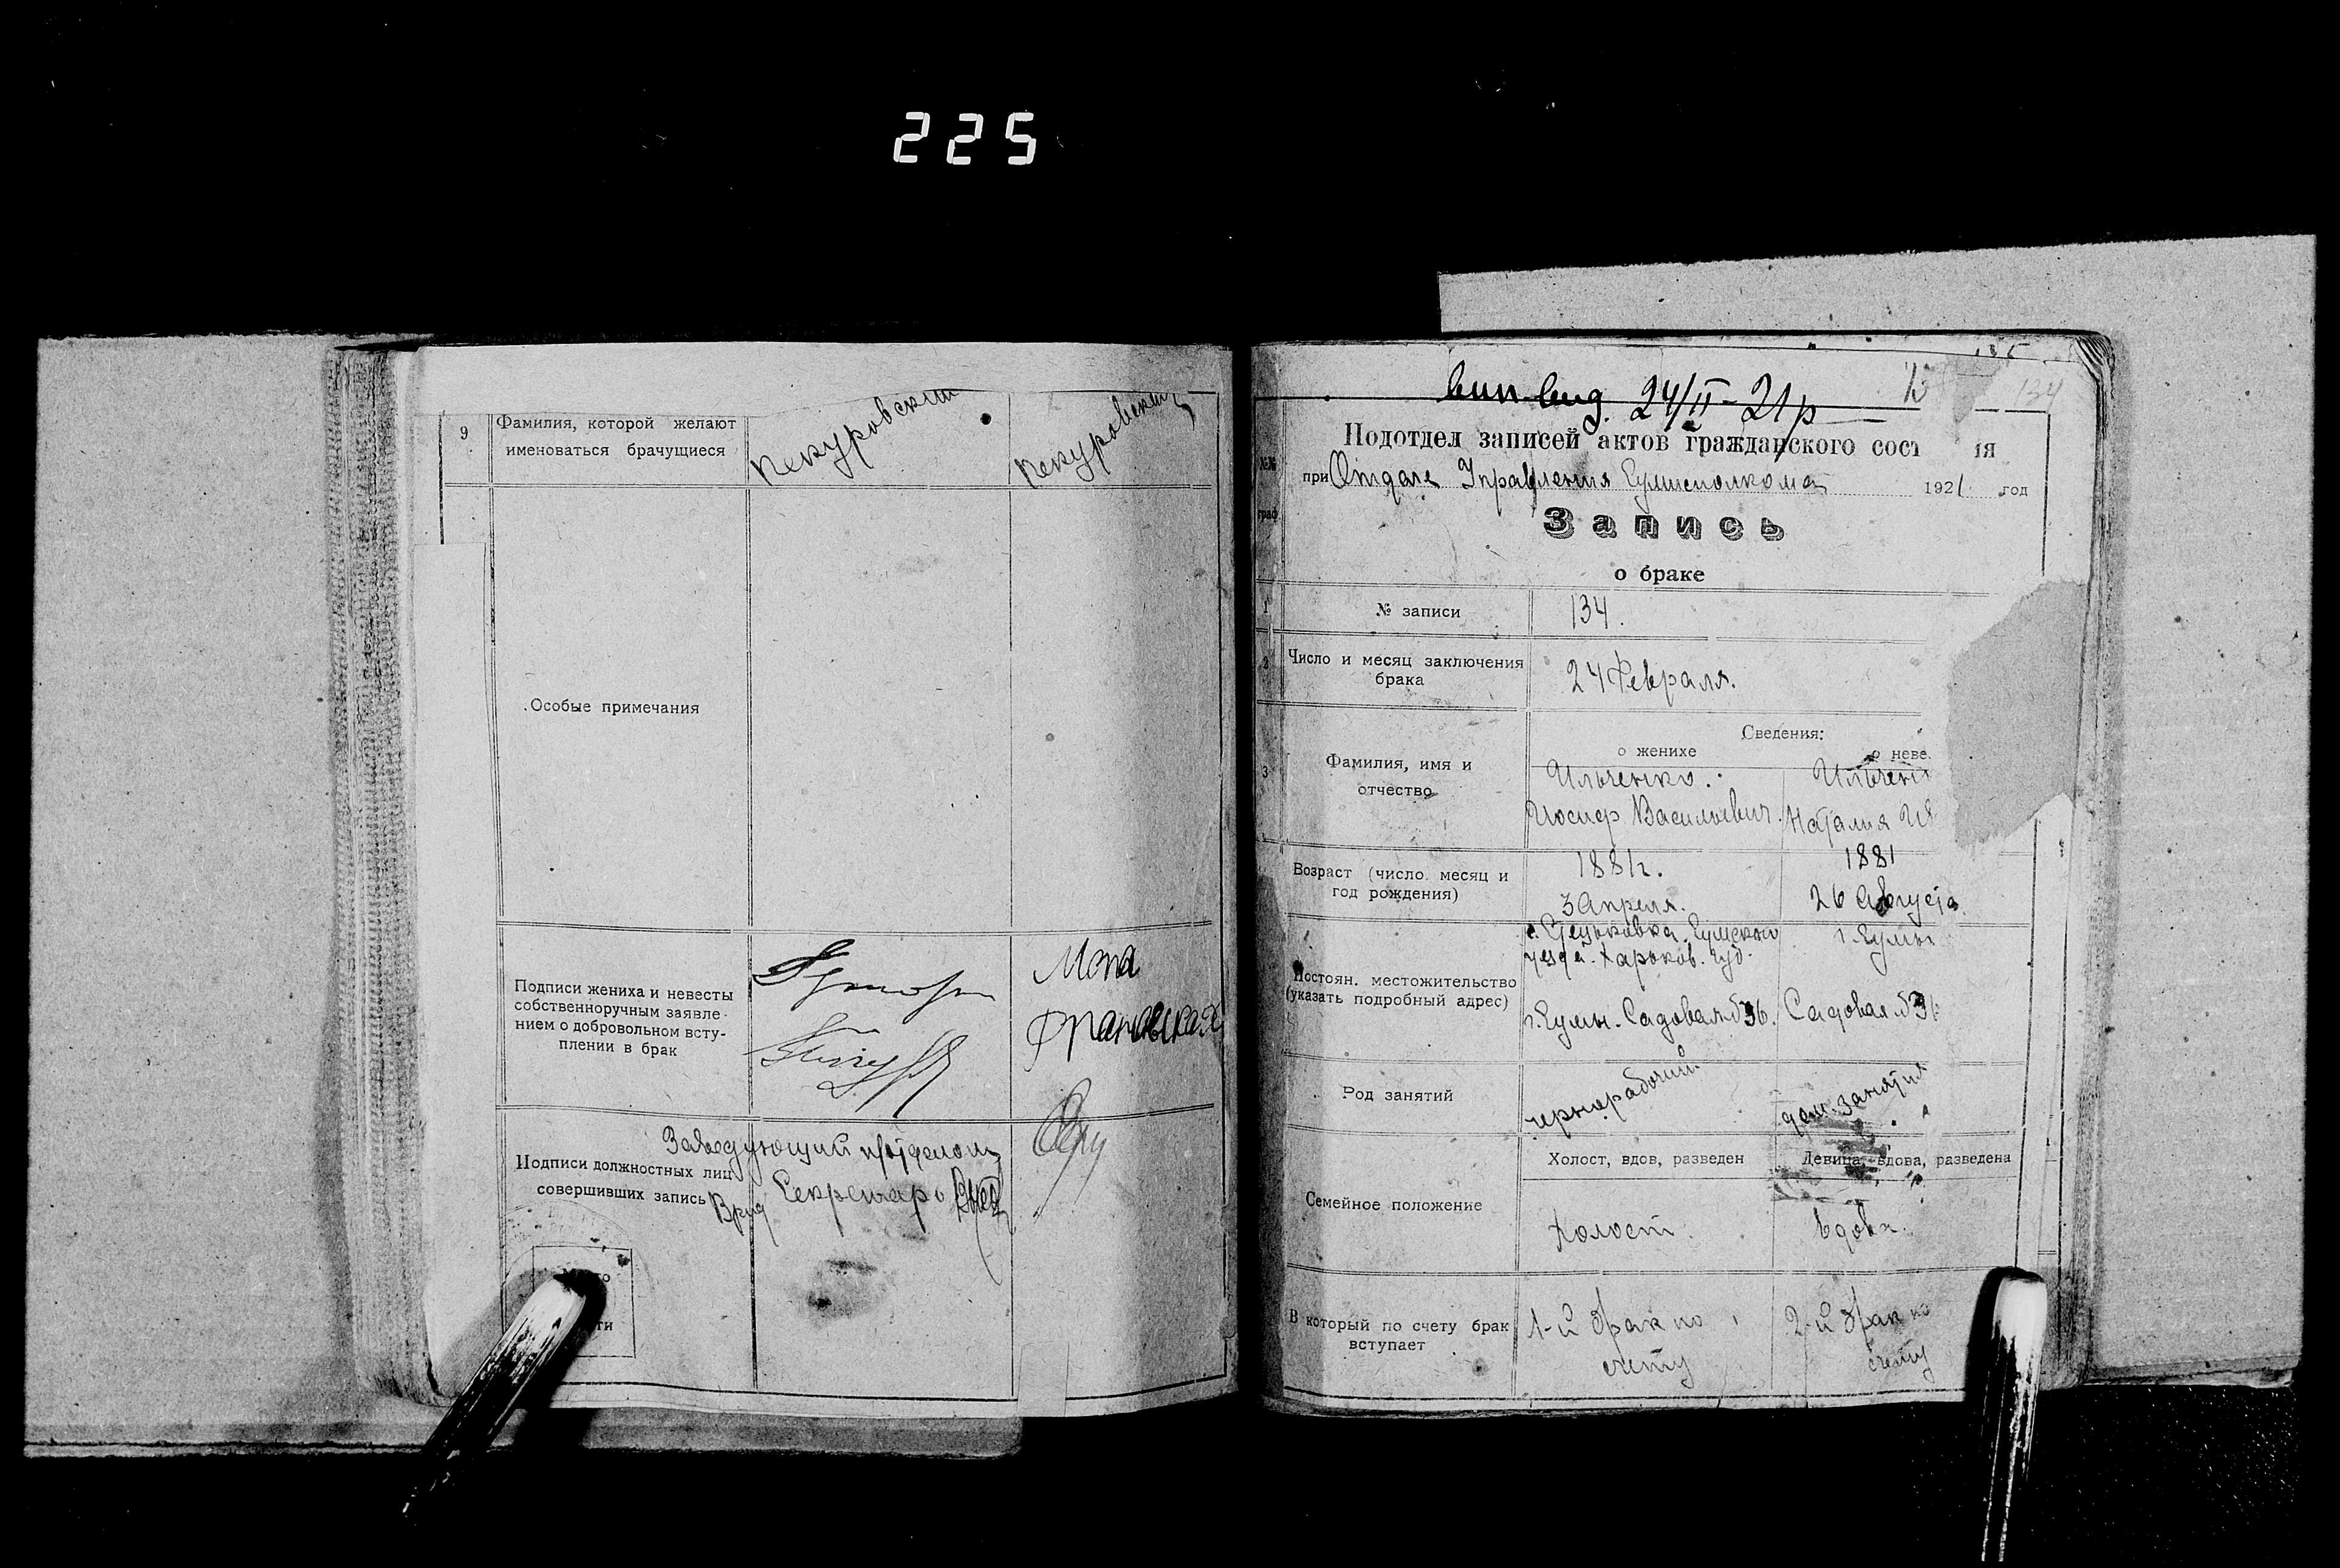 225
9
Фамилия, которой желают
именоваться брачущиеся
Пекуровский
Пекуровский
Особые примечания
Подписи жениха и невесты
собственноручным заявле-
нием о добровольном всту-
плении в брак
Подписи должностных лиц
совершивших запись
Заведующий п/отделом
Врид Секретарь
134
вип. вид. 24/II-21р
Подотдел записей актов гражданского сост ия
при Отделе Управления Сумисполкома 1921 год
Запись
о браке
1
№ записи
134.
2
Число и месяц заключения
брака
24 Февраля.
3
Фамилия, имя и
отчество
Сведения:
о женихе
о неве
Ильченко.
Иосиф Васильевич.
Ильчен
Наталия
Возраст (число, месяц и
год рождения)
1881 г.
3 Апреля.
1881
26 Августа
Постоян. местожительство
(указать подробный адрес)
Сумского
уезда. Харьков. губ.
г. Сумы. Садовая. 36.
г. Сумы
Садовая. 3
Род занятий
чернорабочий
дом. занятия
Семейное положение
Холост, вдов, разведен
Девица, вдова, разведена
Холост.
вдова.
В который по счету брак
вступает
1-й брак по
счету
2-й брак по
счету